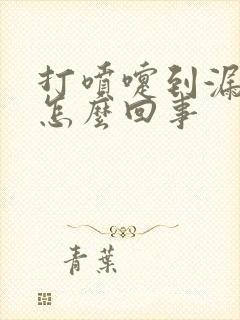 打噴嚏到漏
怎麼回事
青葉